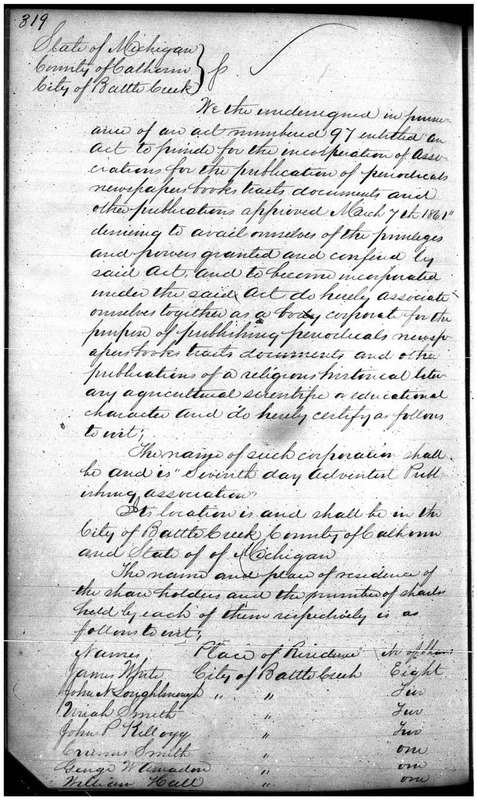 819
State of Michigan
County of Calhoun
City of Battle Creek } ss
We the undersigned in pursu-
ance of an act numbered 97 entitled "an
act to provide for the incorporation of Asso-
ciations for the publication of periodicals
newspapers books tracts documents and
other publications approved March 7th 1861"
desireing to avail ourselves of the privileges
and powers granted and confered by
said Act and to become incorporated
under the said Act do hereby associate
ourselves together as a body corporate for the
purpose of publishing periodicals newsp-
apers books tracts documents and other
publications of a religious historical liter-
ary agricultural scientific or educational
character and do hereby certify as follows
to wit;
The name of such corporation shall
be and is "Seventh day adventist Publ-
ishing association"
Its location is and shall be in the
City of Battle Creek County of Calhoun
and State of of Michigan
The name and place of residence of
the share holders and the number of shares
held by each of them respectively is as
follows to wit;
Names Place of Residence No of shares
James White City of Battle Creek Eight
John N Loughborough " " "
Uriah Smith "
John P Kellogg "
" one
George W Amadon " one
William Hall " one